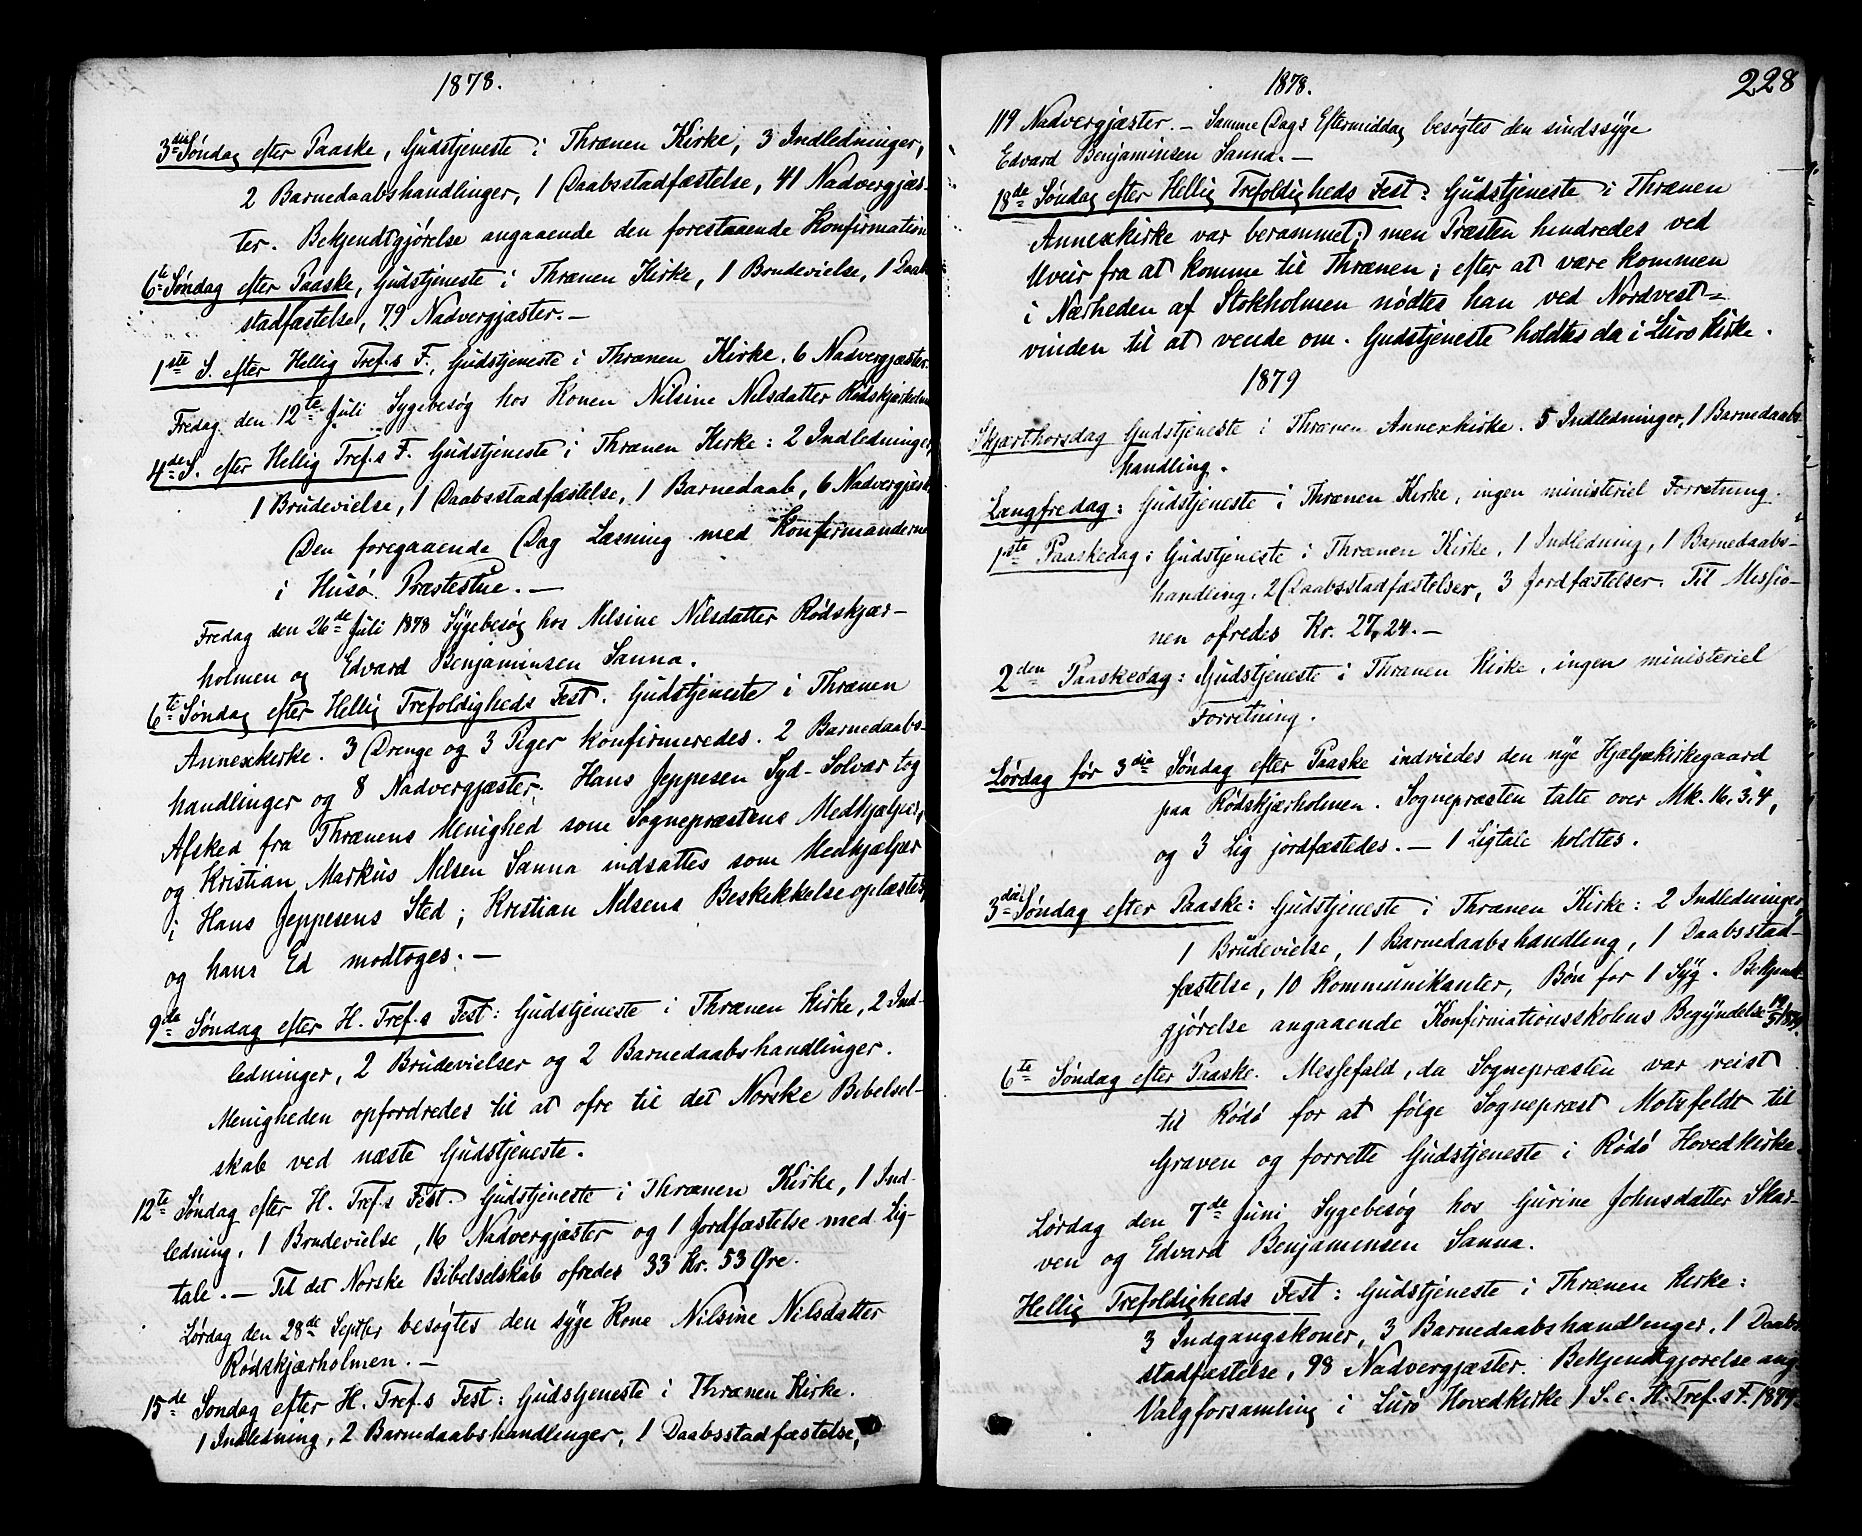 1878.
3die Søndag efter Paaske, Gudstjeneste i Thrænen Kirke, 3 Indledninger,
2 Barnedaabshandlinger, 1 Daabsstadfæstelse, 41 Nadvergjæs-
ter. Bekjendtgjørelse angaaende den forestaaende Konfirmation
6te Søndag efter Paaske, Gudstjeneste i Thrænen Kirke, 1 Brudevielse, 1 Daab
stadfæstelse, 79 Nadvergjæster. —
1ste S. efter Hellig Tref.s F., Gudstjeneste i Thrænen Kirke, 6 Nadvergjæster.
Fredag den 12te Juli Sygebesøg hos Konen Nilsine Nilsdatter Rødskjærholm
4de S. efter Hellig Tref.s F. Gudstjeneste i Thrænen Kirke: 2 Indledninger,
1 Brudevielse, 1 Daabsstadfæstelse, 1 Barnedaab, 6 Nadvergjæst.
Den foregaaende Dag Læsning med Konfirmanderne
i Husø Præstestue. —
Fredag den 26de Juli 1878 Sygebesøg hos Nilsine Nilsdatter Rødskjær-
holmen og Edvard Benjaminsen Sanna.
6te Søndag efter Hellig Trefoldigheds Fest. Gudstjeneste i Thrænen
Annexkirke. 3 Drenge og 3 Piger konfirmeredes. 2 Barnedaabs-
handlinger og 8 Nadvergjæster. Hans Jeppesen Syd-Solvær tog
Afsked fra Thrænens Menighed som Sognepræstens Medhjælper,
og Kristian Markus Nilsen Sanna indsattes som Medhjælper
i Hans Jeppesens Sted; Kristian Nilsens Beskikkelse oplæstes,
og hans Ed modtoges. —
9de Søndag efter H. Tref.s Fest: Gudstjeneste i Thrænen Kirke, 2 Ind-
ledninger, 2 Brudevielser og 2 Barnedaabshandlinger.
Menigheden opfordredes til at ofre til det Norske Bibelsel-
skab ved næste Gudstjeneste.
12te Søndag efter H. Tref.s Fest Gudstjeneste i Thrænen Kirke, 1 Ind-
ledning, 1 Brudevielse, 16 Nadvergjæster og 1 Jordfæstelse med Lig-
tale. — Til det Norske Bibelselskab ofredes 33 Kr. 53 Øre.
Lørdag den 28de Septber besøgtes den syge Kone Nilsine Nilsdatter
Rødskjærholmen. —
15de Søndag efter H. Tref.s Fest: Gudstjeneste i Thrænen Kirke.
1 Indledning, 2 Barnedaabshandlinger, 1 Daabsstadfæstelse,
1878.
228
119 Nadvergjæster. — Samme Dags Eftermiddag besøgtes den sindssyge
Edvard Benjaminsen Sanna. —
18de Søndag efter Hellig Trefoldigheds Fest: Gudstjeneste i Thrænen
Annexkirke var berammet; men Præsten hindredes ved
Uveir fra at komme til Thrænen; efter at være kommen
i Nærheden af Stokholmen nødtes han ved Nordvest-
vinden til at vende om. Gudstjeneste holdtes da i Lurø Kirke.
1879
Skjærthorsdag Gudstjeneste i Thrænen Annexkirke. 5 Indledninger, 1 Barnedaabs-
handling.
Langfredag: Gudstjeneste i Thrænen Kirke, ingen ministeriel Forretning.
1ste Paaskedag: Gudstjeneste i Thrænen Kirke, 1 Indledning, 1 Barnedaabs-
handling, 2 Daabsstadfæstelser, 3 Jordfæstelser. Til Missio-
nen ofredes Kr. 27,24. —
2den Paaskedag: Gudstjeneste i Thrænen Kirke, ingen ministeriel
Forretning.
Lørdag før 3die Søndag efter Paaske indviedes den nye Hjælpekirkegaard
paa Rødskjærholmen. Sognepræsten talte over Mk. 16,3,4,
og 3 Lig jordfæstedes. — 1 Ligtale holdtes.
3die Søndag efter Paaske: Gudstjeneste i Thrænen Kirke: 2 Indledninger,
1 Brudevielse, 1 Barnedaabshandling, 1 Daabsstad-
fæstelse, 10 Kommunikanter, Bøn for 1 Syg. Bekjendt
gjørelse angaaende Konfirmationsskolens Begyndelse
6te Søndag efter Paaske. Messefald, da Sognepræsten var reist
til Rødø for at følge Sognepræst Motzfeldt til
Graven og forrette Gudstjeneste i Rødø Hovedkirke.
Lørdag den 7de Juni Sygebesøg hos Gurine Johnsdatter Skar-
ven og Edvard Benjaminsen Sanna.
Hellig Trefoldigheds Fest: Gudstjeneste i Thrænen Kirke:
3 Indgangskoner, 3 Barnedaabshandlinger, 1 Daabs
stadfæstelse, 98 Nadvergjæster. Bekjendtgjørelse ang.
Valgforsamling i Lurø Hovedkirke 1 S. e. H. Tref.s F. 1879.